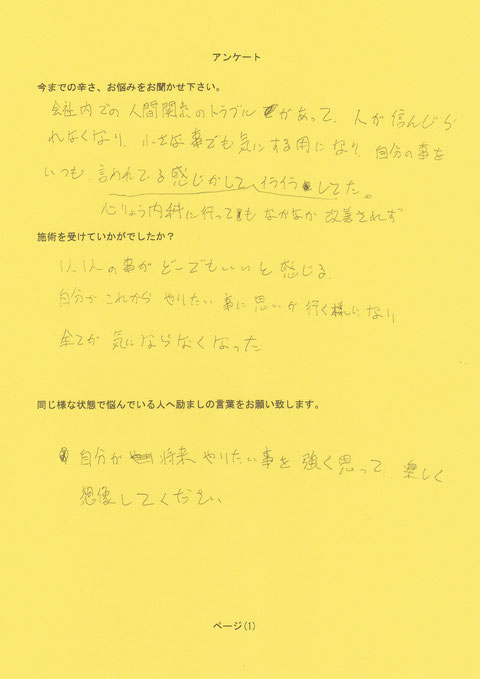 アンケート
今までの辛さ、お悩みをお聞かせ下さい。
会社内での人間関系のトラブルがあって、人が信んじら
れなくなり、小さな事でも気にする用になり、自分の事を
いつも、言われている感じがして、イライラしてた。
心りょう内科に行ってもなかなか改善されず
施術を受けていかがでしたか？
1人1人の事がどーでもいいと感じる。
自分がこれからやりたい事に思いが行く様になり
全てが気にならなくなった
同じ様な状態で悩んでいる人へ励ましの言葉をお願い致します。
自分が将来やりたい事を強く思って、楽しく
想像してください
ページ(1)